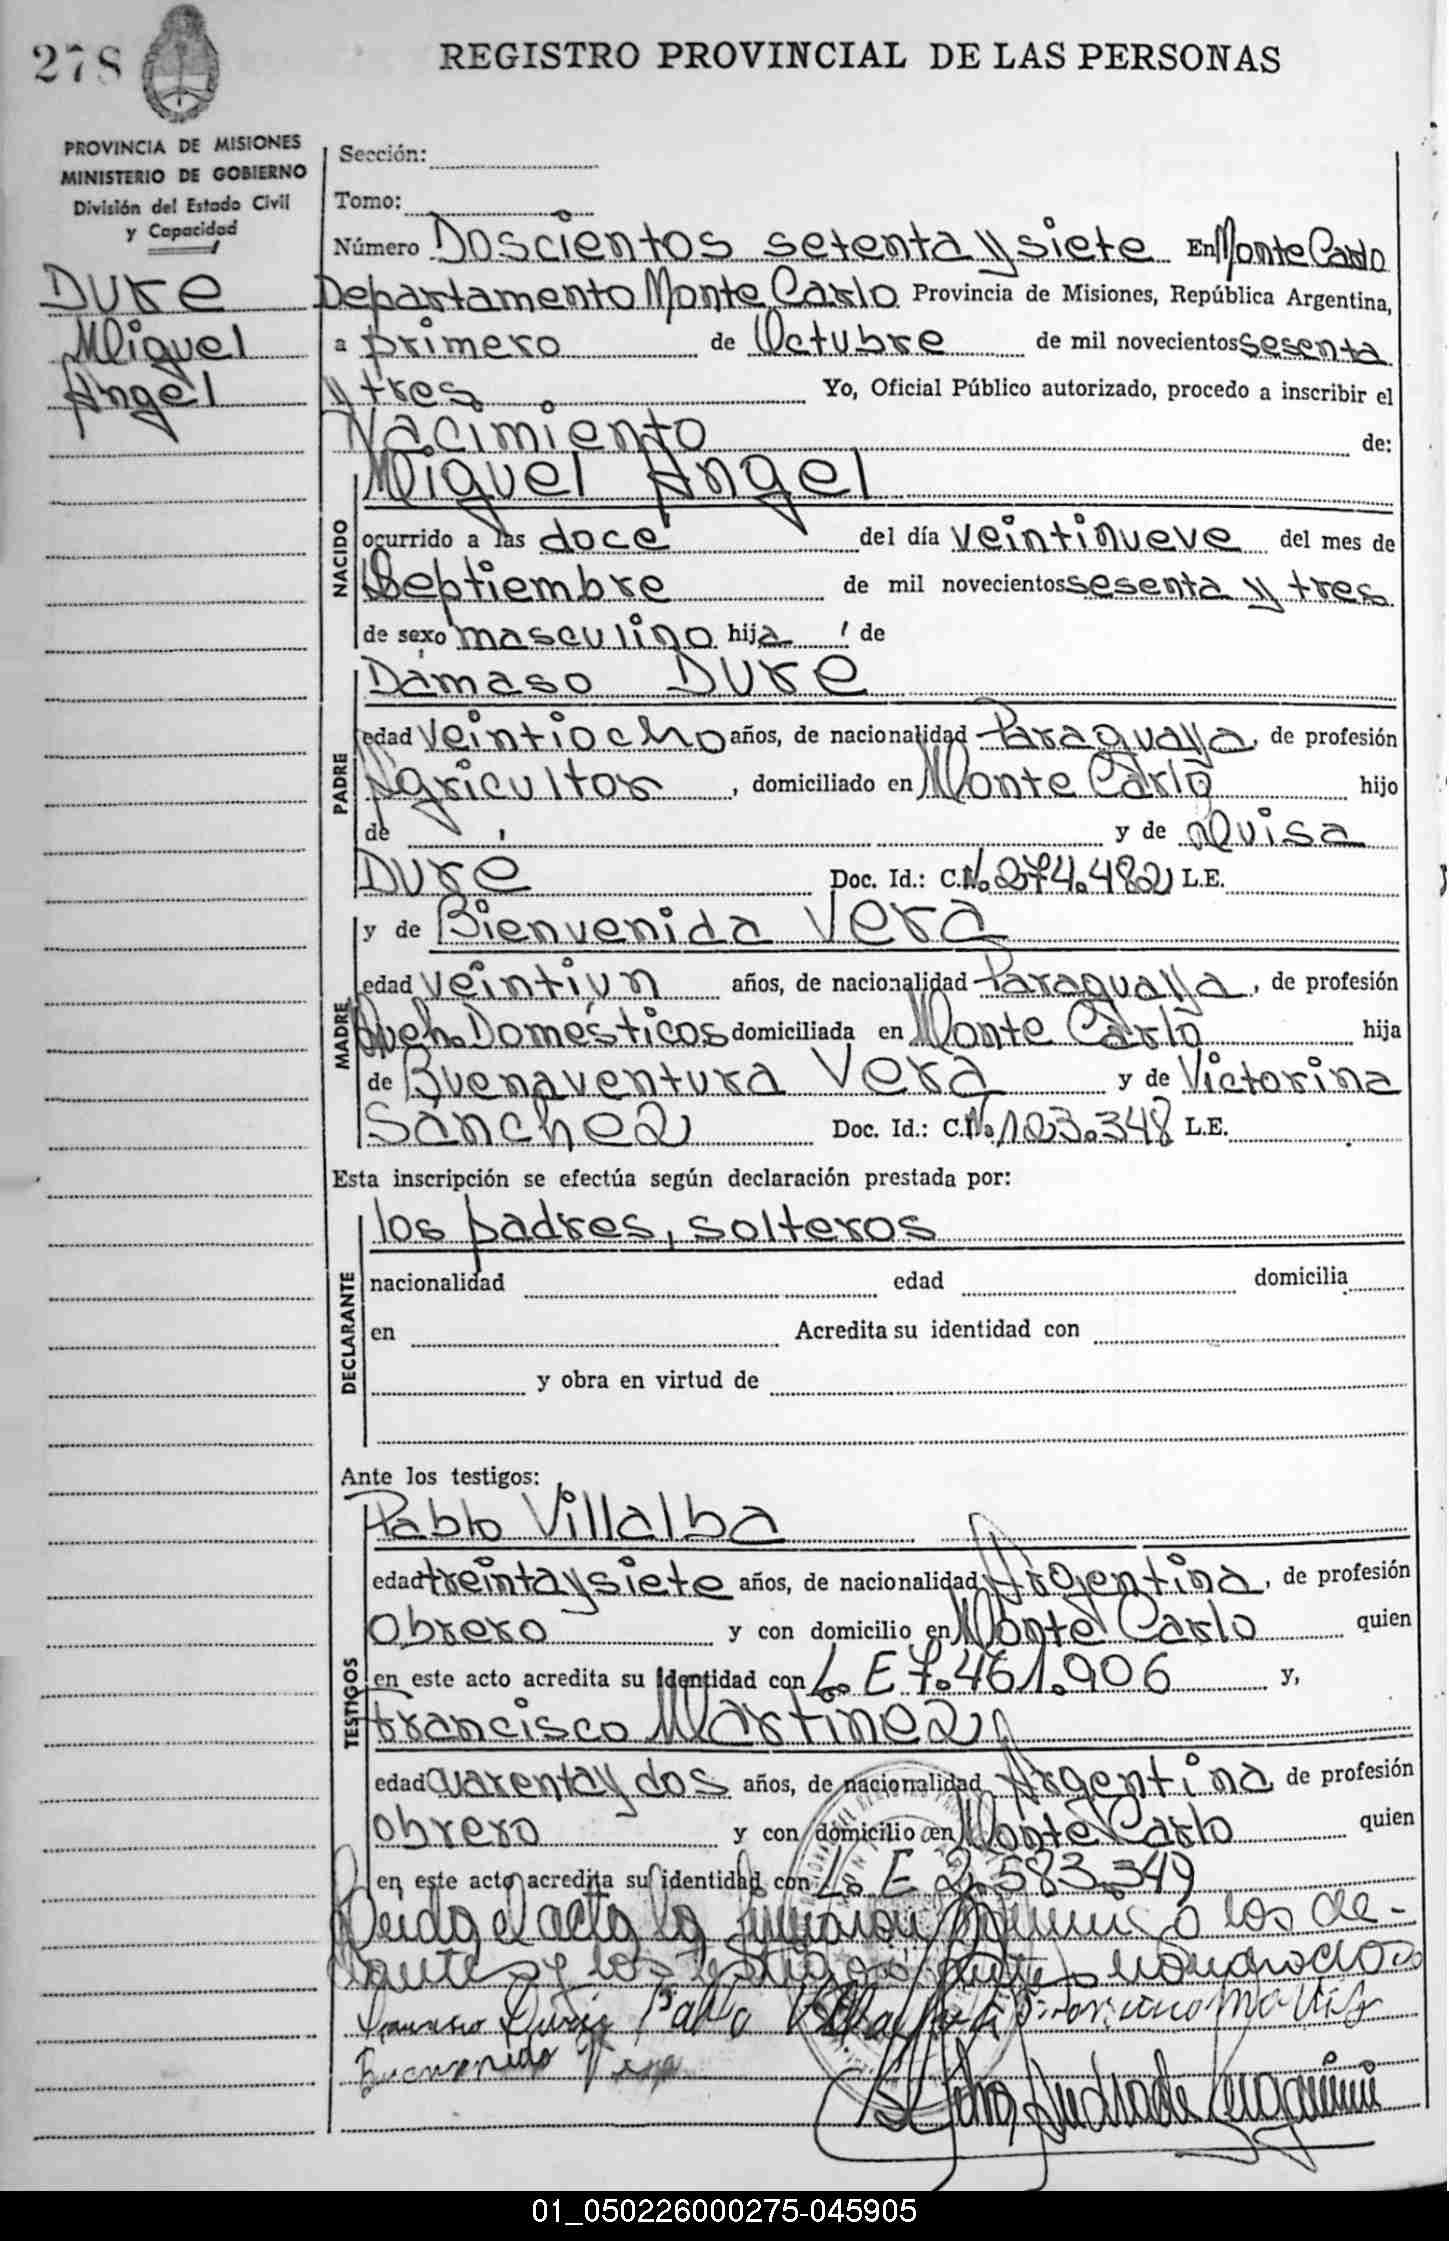 278
REGISTRO PROVINCIAL DE LAS PERSONAS
PROVINCIA DE MISIONES
MINISTERIO DE GOBIERNO
División del Estado Civil
y Capacidad
Dure
Miguel
Angel
Sección:
Tomo:
Número Doscientos setenta y siete En Monte Carlo
Departamento Monte Carlo Provincia de Misiones, República Argentina,
a primero de Octubre de mil novecientos sesenta
y tres Yo, Oficial Público autorizado, procedo a inscribir el
Nacimiento de:
NACIDO
Miguel Angel
ocurrido a las doce del día veintinueve del mes de
Septiembre de mil novecientos sesenta y tres
de sexo masculino hija de
PADRE
Dámaso Dure
edad veintiocho años, de nacionalidad Paraguaya, de profesión
Agricultor, domiciliado en Monte Carlo hijo
de y de Luisa
Duré Doc. Id.: C. No. 274.482 L.E.
MADRE
y de Bienvenida Vera
edad veintiun años, de nacionalidad Paraguaya, de profesión
Queh. Domésticos domiciliada en Monte Carlo hija
de Buenaventura Vera y de Victorina
Sánchez Doc. Id.: C. No. 123.348 L.E.
Esta inscripción se efectúa según declaración prestada por:
DECLARANTE
los padres, solteros
nacionalidad edad domicilia
en Acredita su identidad con
y obra en virtud de
Ante los testigos:
TESTIGOS
Pablo Villalba
edad treinta y siete años, de nacionalidad Argentina, de profesión
Obrero y con domicilio en Monte Carlo quien
en este acto acredita su Identidad con L. E 7.461.906 y,
Francisco Martinez
edad cuarenta y dos años, de nacionalidad Argentina de profesión
Obrero y con domicilio en Monte Carlo quien
en este acto acredita su identidad con L. E 2.583.349
Leida el acta la firmaron los de-
y los testigos
Pablo Villalba
Bienvenida Vera
01_050226000275-045905